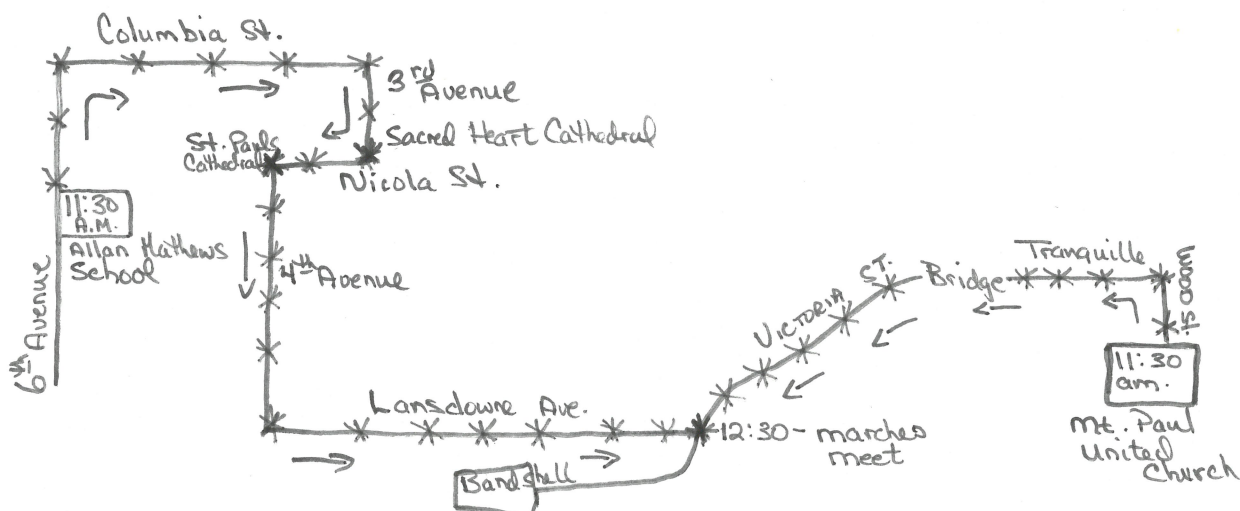 Columbia St.
3rd
Avenue
Sacred Heart Cathedral
St. Pauls
Cathedral
Nicola St.
11:30
A.M.
Allan Mathews
School
6th Avenue
4th Avenue
Lansdowne Ave.
Bandshell
12:30 - marches
meet
VICTORIA ST.
Bridge
Tranquille
wood st.
11:30
am.
Mt. Paul
United
Church